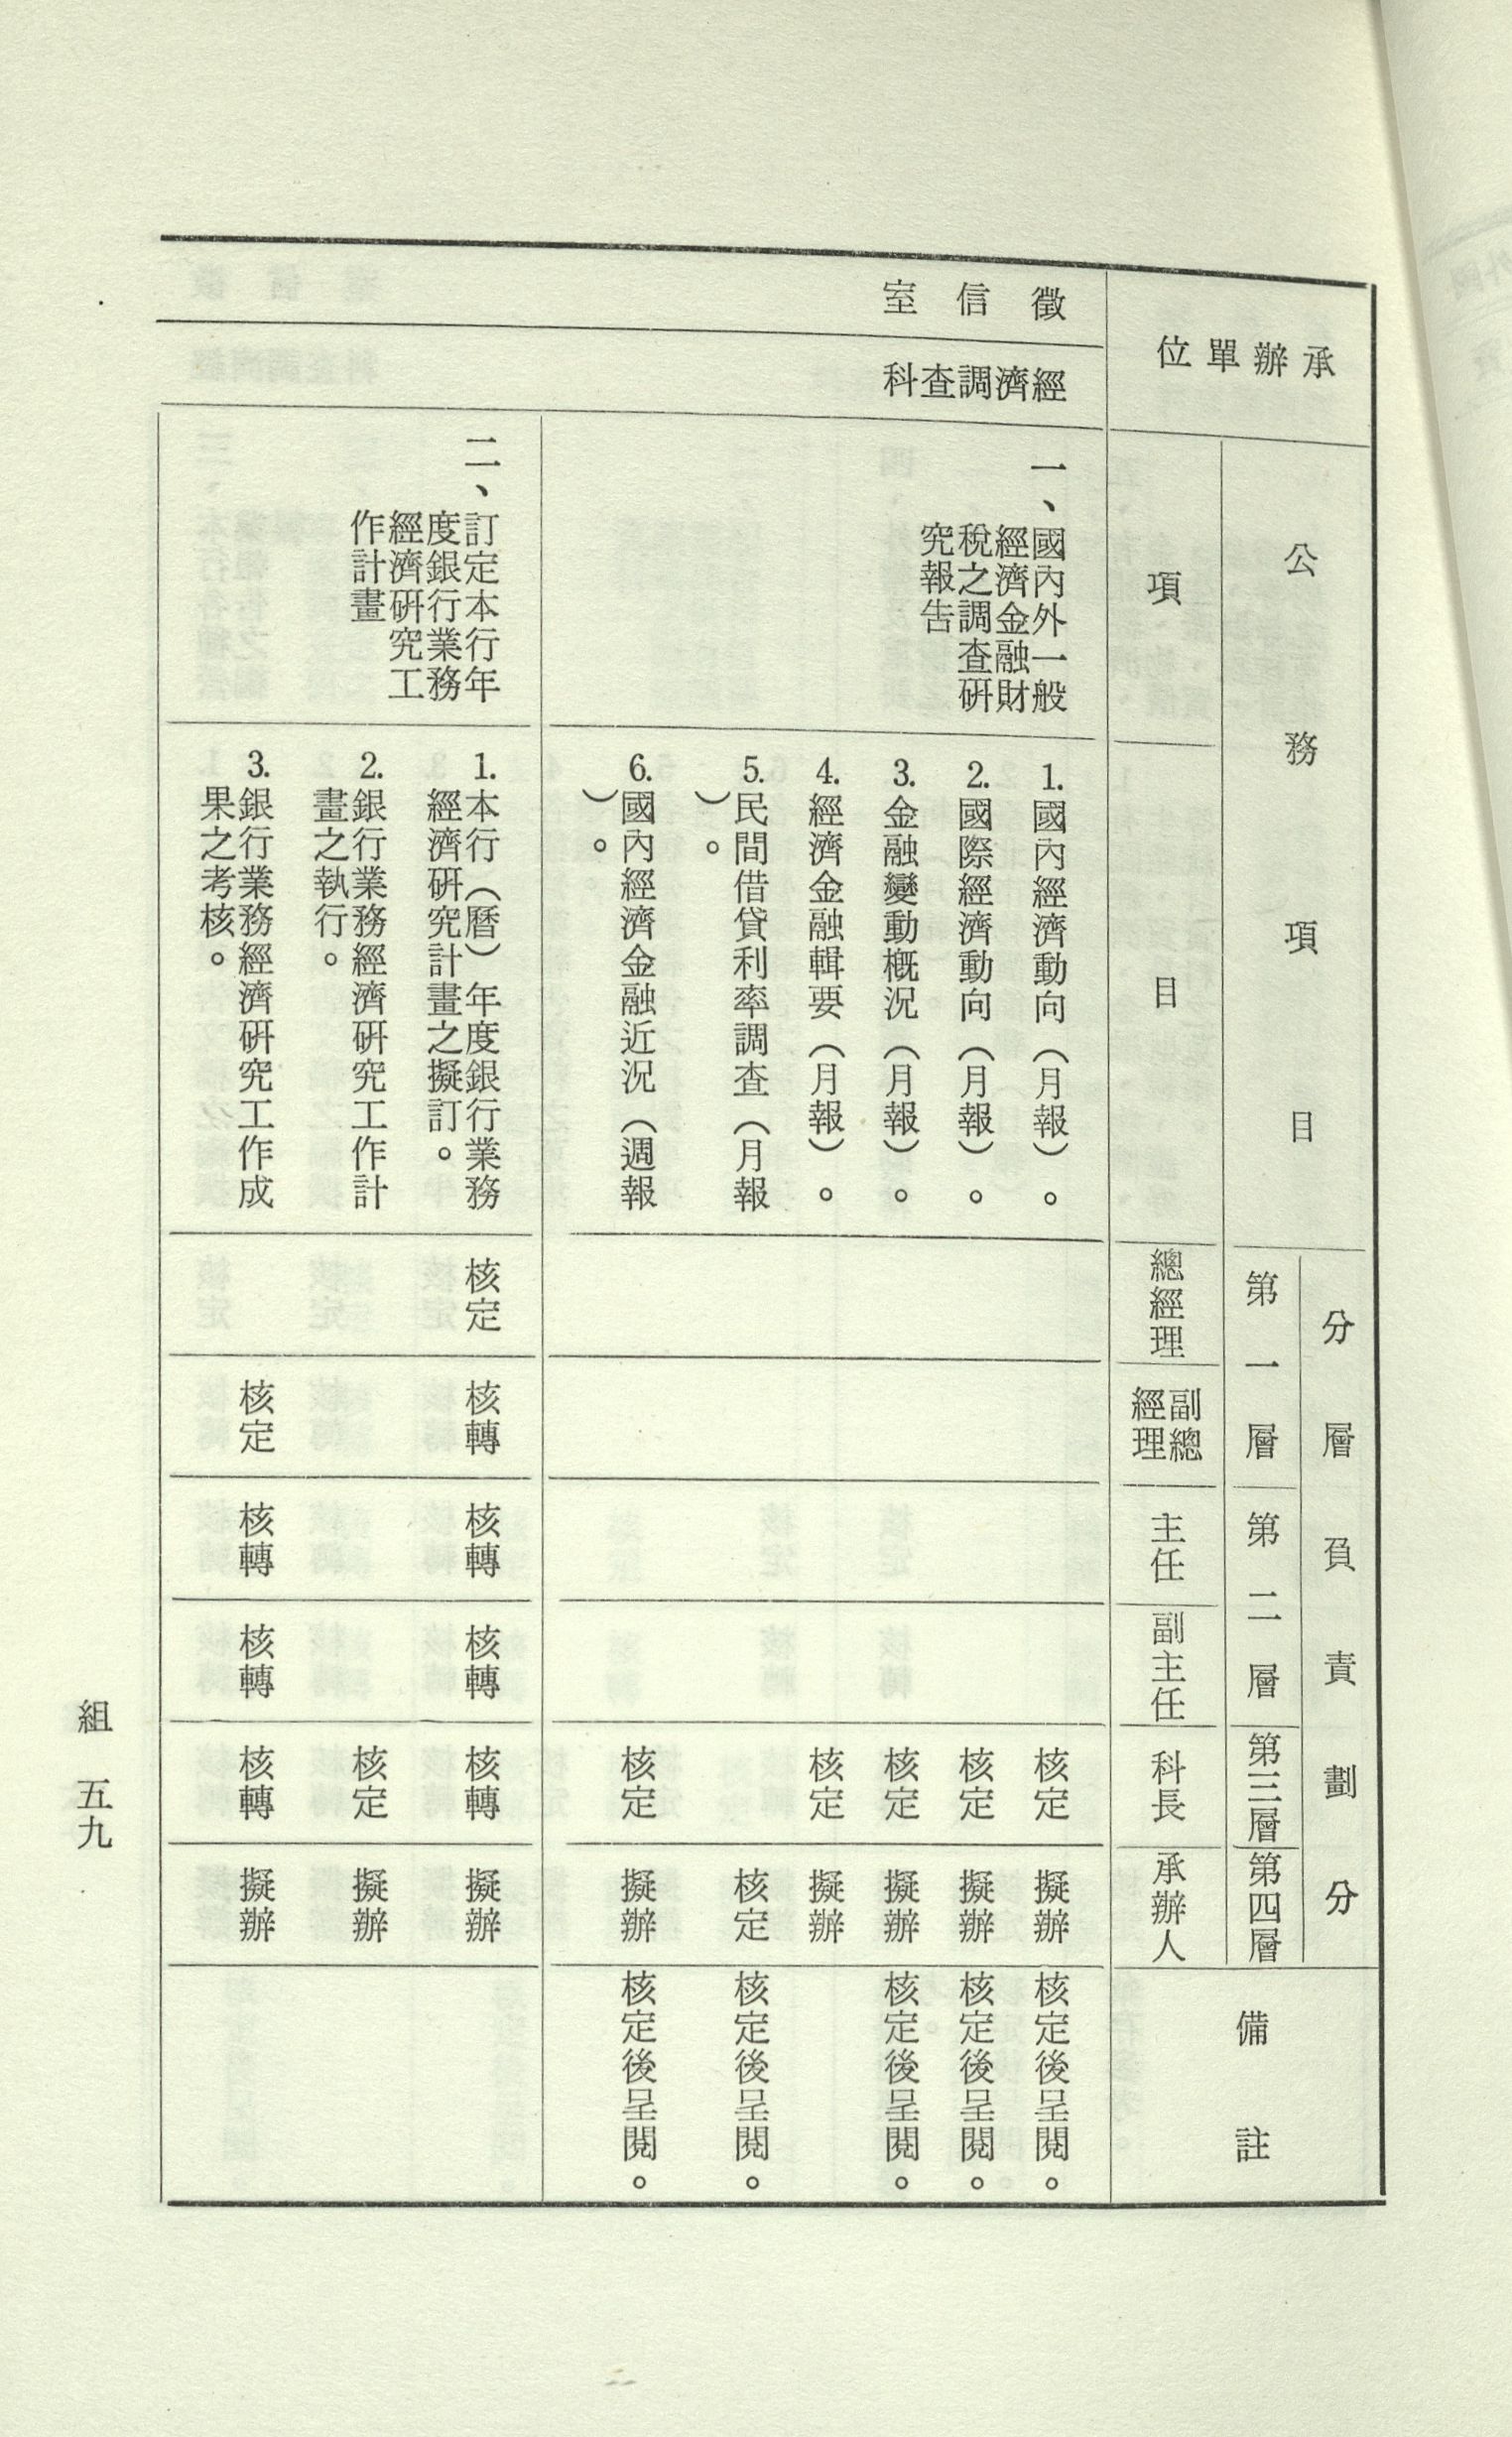 承辦單位
公務項目
分層負責劃分
第一層
第二層
第三層
第四層
項
目
總經理
副總
經理
主任
副主任
科長
承辦人
備註
徵信室
經濟調查科
一、國內外一般
經濟金融財
稅之調查研
究報告
1.國內經濟動向（月報）。
核定
擬辦
核定後呈閱。
2.國際經濟動向（月報）。
核定
擬辦
核定後呈閱。
3.金融變動概況（月報）。
核定
擬辦
核定後呈閱。
4.經濟金融輯要（月報）。
核定
擬辦
5.民間借貸利率調查（月報
）。
核定
核定後呈閱。
6.國內經濟金融近況（週報
）。
核定
擬辦
核定後呈閱。
二、訂定本行年
度銀行業務
經濟研究工
作計畫
1.本行（曆）年度銀行業務
經濟研究計畫之擬訂。
核定
核轉
核轉
核轉
核轉
擬辦
2.銀行業務經濟研究工作計
畫之執行。
核定
擬辦
3.銀行業務經濟研究工作成
果之考核。
核定
核轉
核轉
核轉
擬辦
組 五九